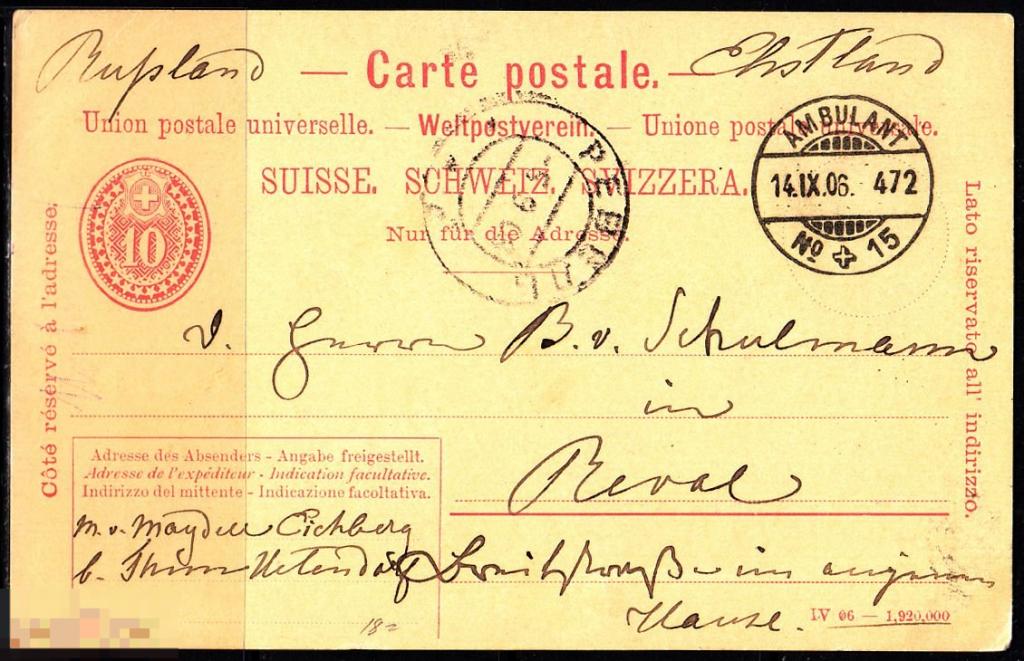 Rußland — Carte postale. — Ehstland
Union postale universelle. — Weltpostverein. — Unione postale universale.
SUISSE. SCHWEIZ. SVIZZERA.
Nur für die Adresse.
10
AMBULANT
14.IX.06. 472
No 15
Côté réservé à l'adresse.
Lato riservato all' indirizzo.
B. v. Schulmann
in
Reval
Adresse des Absenders - Angabe freigestellt.
Adresse de l'expéditeur - Indication facultative.
Indirizzo del mittente - Indicazione facoltativa.
M. v. Maydell Eichberg
b. Thun Uetendorf
Breitstraße im eigenen
Hause.
IV 06 — 1,920,000